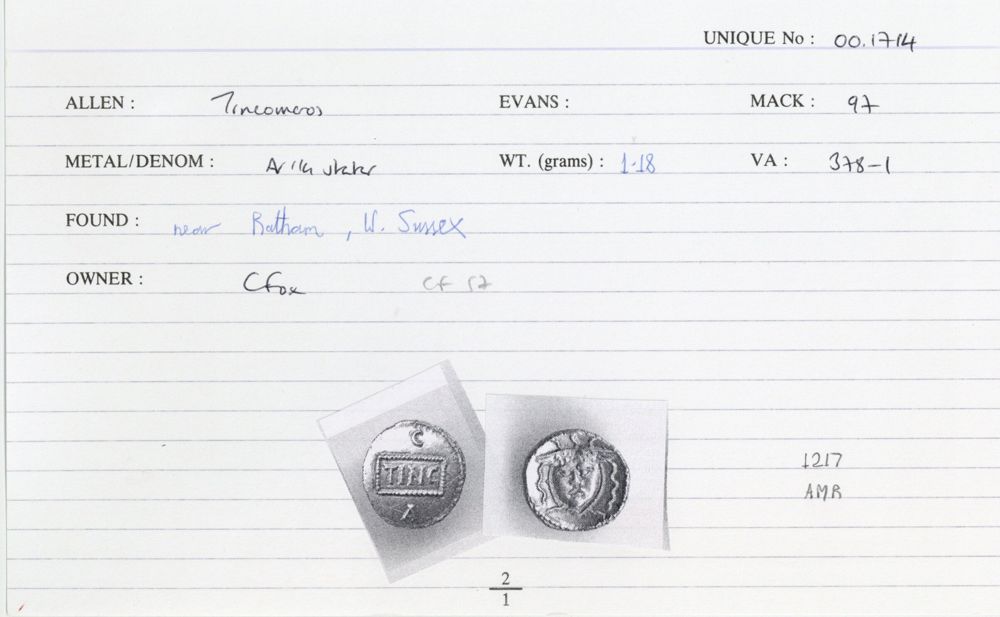 UNIQUE No : 00.1714
ALLEN : Tincomeros EVANS : MACK : 97
METAL/DENOM : stater WT. (grams) : 1.18 VA : 378-1
FOUND : near Ratham, W. Sussex
OWNER : C Fox CF 57
C
TINC
A
1217
AMR
2
1